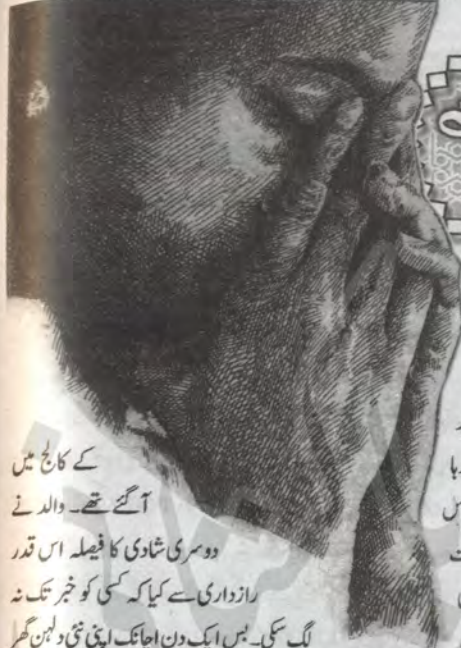 کے کالج میں
آگئے تھے۔ والد نے
دوسری شادی کا فیصلہ اس قدر
رازداری سے کیا کہ کسی کو خبر تک نہ
لگ سکی۔ بس ایک دن اچانک اپنی نئی دلہن گھر